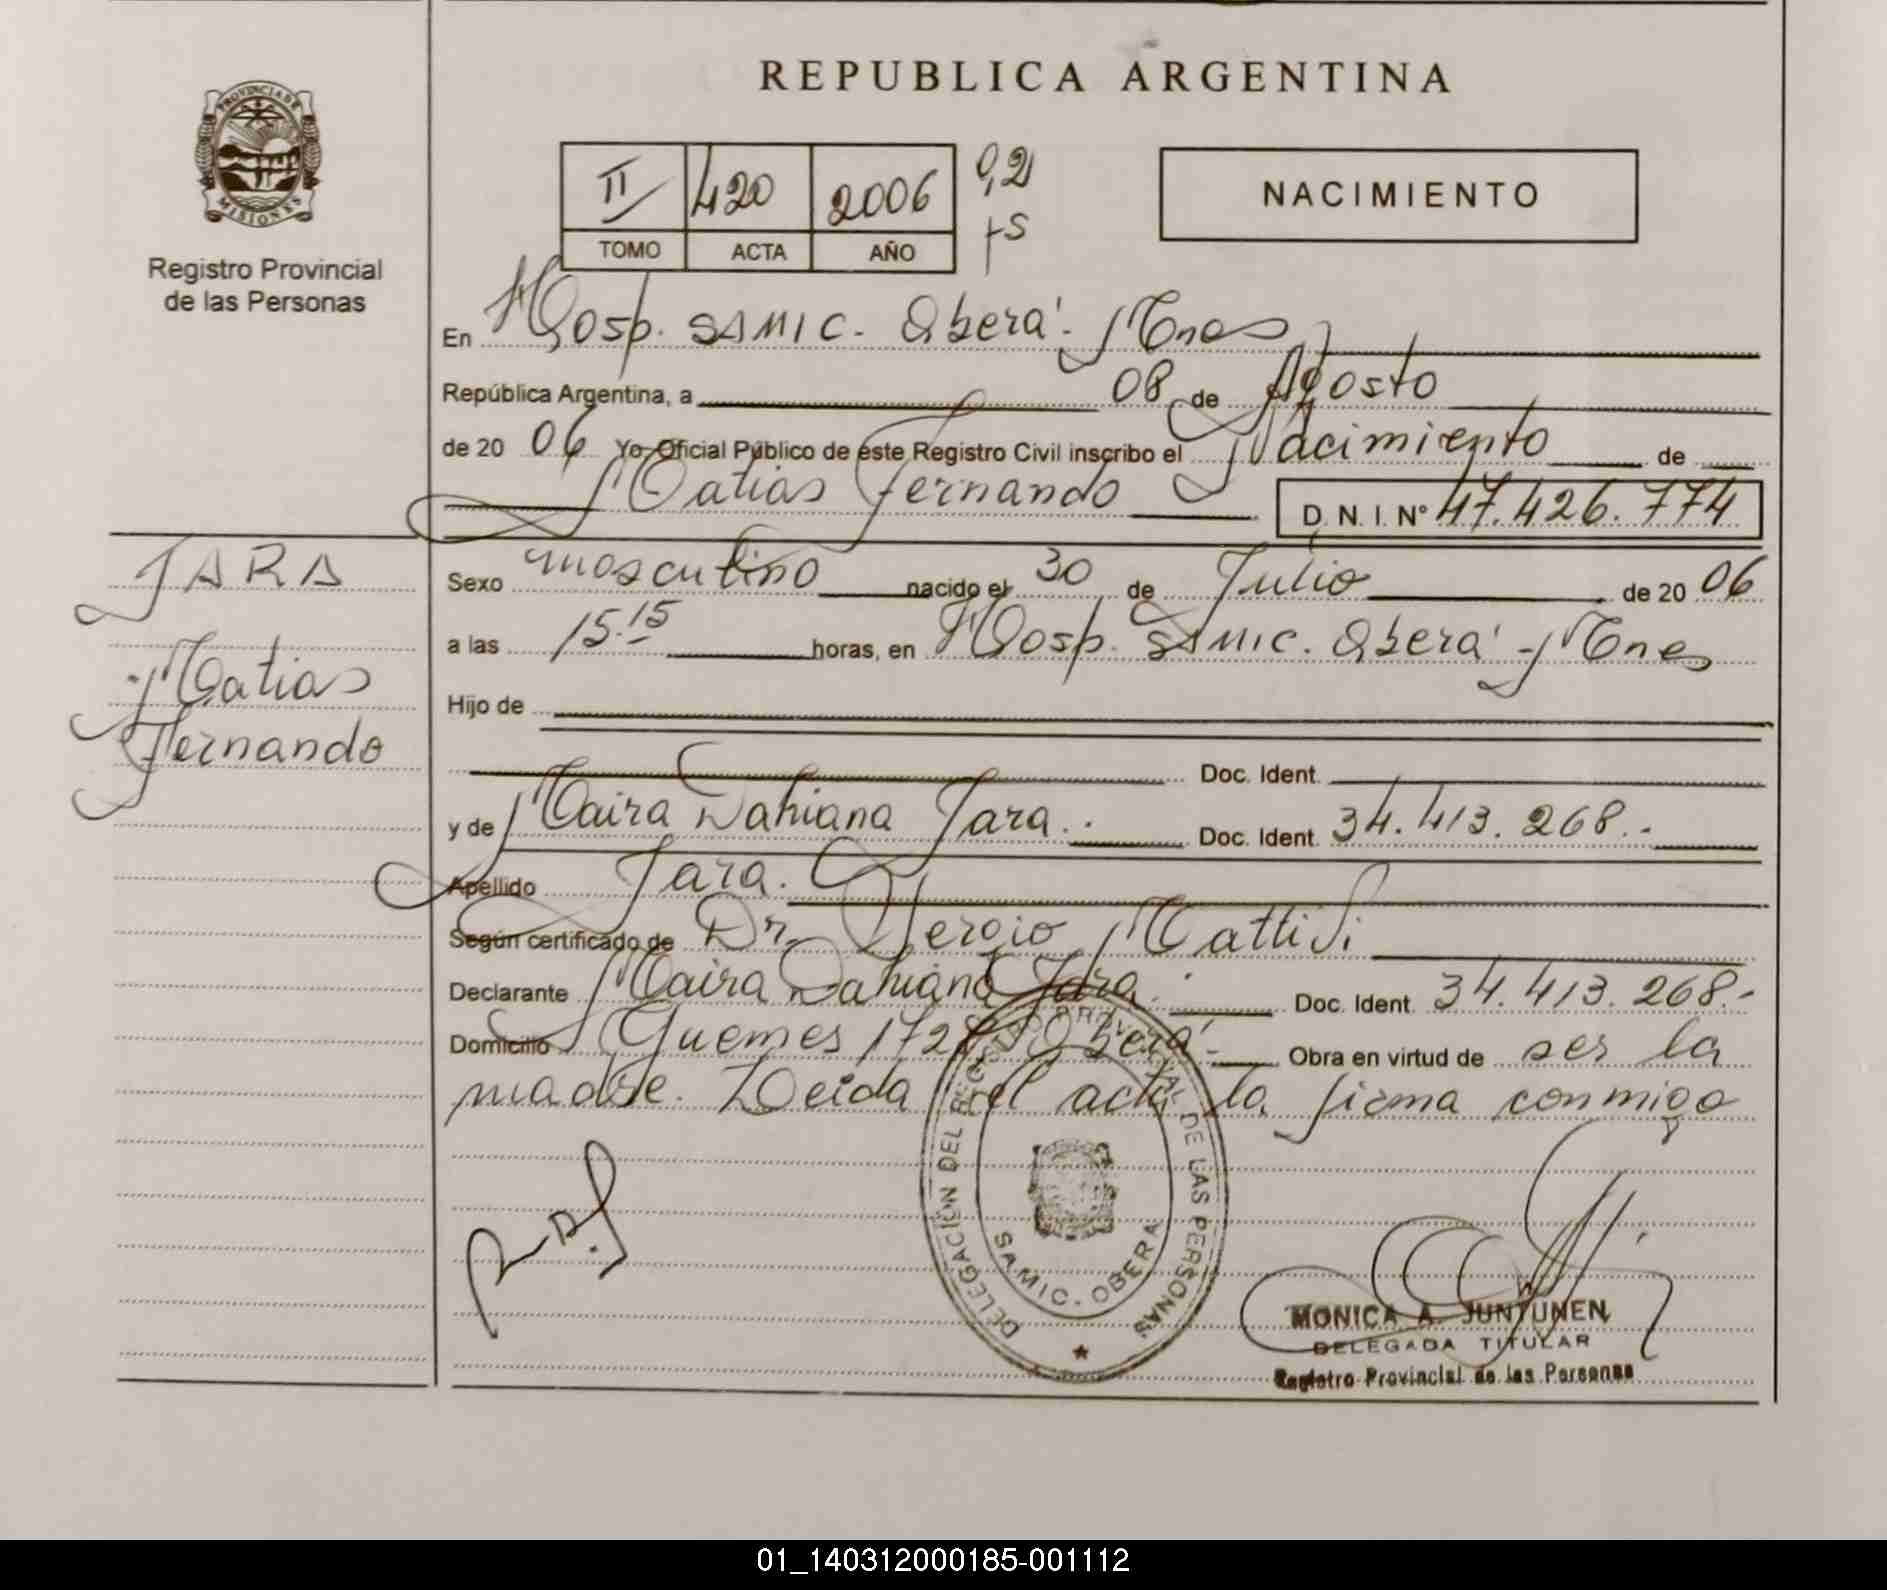 REPUBLICA ARGENTINA
PROVINCIA DE
MISIONES
Registro Provincial
de las Personas
II 420 2006
TOMO ACTA AÑO
NACIMIENTO
En Hosp. SAMIC. Oberá - Mnes
República Argentina, a 08 de Agosto
de 20 06 Yo Oficial Público de este Registro Civil inscribo el Nacimiento de
Matias Fernando D. N. I. N° 47.426.774
JARA
Matias
Fernando
Sexo masculino nacido el 30 de Julio de 20 06
a las 15.15 horas, en Hosp. SAMIC. Oberá - Mnes
Hijo de
Doc. Ident.
y de Maira Dahiana Jara. Doc. Ident. 34.413.268.-
Apellido Jara.
Según certificado de Dr. Sergio
Declarante Maira Dahiana Jara. Doc. Ident. 34.413.268.-
Domicilio Guemes Oberá - Obra en virtud de ser la
madre. Leida el acta la firma conmigo
DELEGACION DEL REGISTRO PROVINCIAL DE LAS PERSONAS
SAMIC - OBERA
MONICA A. JUNTUNEN
DELEGADA TITULAR
Registro Provincial de las Personas
01_140312000185-001112